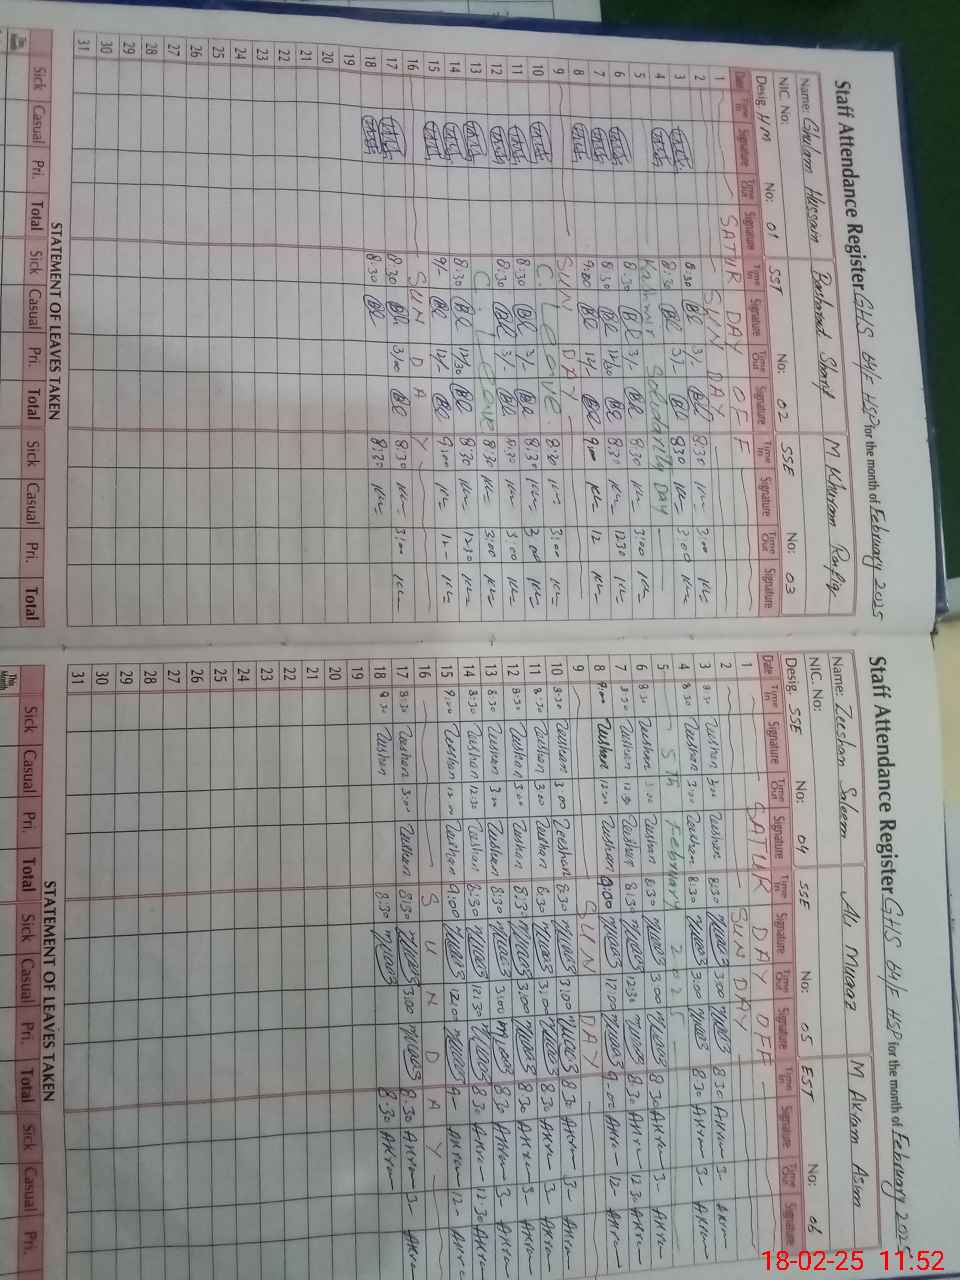 Staff Attendance Register GHS 64/F HSP for the month of February 2025
Name: Ghulam Hussain Bashirad Sharif M Khuram Rafiq
NIC. No:
Desig. HM No: 01 SST No: 02 SSE No: 03
Date Time In Signature Time Out Signature Time In Signature Time Out Signature Time In Signature Time Out Signature
1 SATUR DAY OFF
2 SUN DAY
3 8:30 3/- 8:30 3:00
4 8:30 3/- 8:30 3:00
5 Kashmir Solidarity Day
6 8:30 3/- 8:30 3:00
7 8:30 12/30 8:30 12:30
8 9:00 12/- 9:00 12
9 SUN DAY
10 C. Leave 8:30 3:00
11 8:30 3/- 8:30 3:00
12 8:30 3/- 8:30 3:00
13 C. Leave 8:30 3:00
14 8:30 12/30 8:30 12:30
15 9/- 12/- 9:00 12
16 SUN DAY
17 8:30 3/00 8:30 3:00
18 8:30 8:30
19
20
21
22
23
24
25
26
27
28
29
30
31
STATEMENT OF LEAVES TAKEN
This Month Sick Casual Pri. Total Sick Casual Pri. Total Sick Casual Pri. Total
Staff Attendance Register GHS 64/F HSP for the month of February 2025
Name: Zeeshan Saleem Ali Muaaz M Akram Asim
NIC. No:
Desig. SSE No: 04 SSE No: 05 EST No: 06
Date Time In Signature Time Out Signature Time In Signature Time Out Signature Time In Signature Time Out Signature
1 SATUR DAY OFF
2 SUN DAY
3 8:30 Zeeshan 3:00 Zeeshan 8:30 Muaaz 3:00 Muaaz 8:30 Akram 3- Akram
4 8:30 Zeeshan 3:00 Zeeshan 8:30 Muaaz 3:00 Muaaz 8:30 Akram 3- Akram
5 5th February 2025
6 8:30 Zeeshan 3:00 Zeeshan 8:30 Muaaz 3:00 Muaaz 8:30 Akram 3- Akram
7 8:30 Zeeshan 12:30 Zeeshan 8:30 Muaaz 12:30 Muaaz 8:30 Akram 12:30 Akram
8 9:00 Zeeshan 12:00 Zeeshan 9:00 Muaaz 12:00 Muaaz 9:00 Akram 12- Akram
9 SUN DAY
10 8:30 Zeeshan 3:00 Zeeshan 8:30 Muaaz 3:00 Muaaz 8:30 Akram 3- Akram
11 8:30 Zeeshan 3:00 Zeeshan 8:30 Muaaz 3:00 Muaaz 8:30 Akram 3- Akram
12 8:30 Zeeshan 3:00 Zeeshan 8:30 Muaaz 3:00 Muaaz 8:30 Akram 3- Akram
13 8:30 Zeeshan 3:00 Zeeshan 8:30 Muaaz 3:00 Muaaz 8:30 Akram 3- Akram
14 8:30 Zeeshan 12:30 Zeeshan 8:30 Muaaz 12:30 Muaaz 8:30 Akram 12:30 Akram
15 9:00 Zeeshan 12:00 Zeeshan 9:00 Muaaz 12:00 Muaaz 9- Akram 12- Akram
16 SUNDAY
17 8:30 Zeeshan 3:00 Zeeshan 8:30 Muaaz 3:00 Muaaz 8:30 Akram 3- Akram
18 8:30 Zeeshan 8:30 Muaaz 8:30 Akram
19
20
21
22
23
24
25
26
27
28
29
30
31
STATEMENT OF LEAVES TAKEN
This Month Sick Casual Pri. Total Sick Casual Pri. Total Sick Casual Pri.
18-02-25 11:52